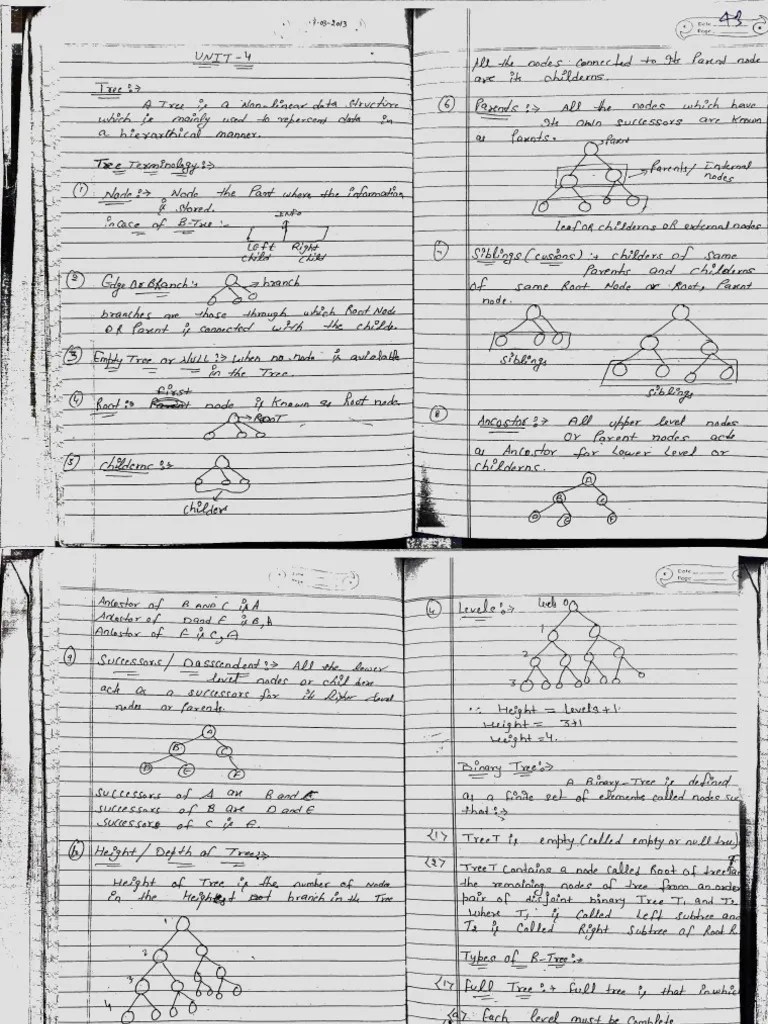 -03-2013
UNIT-4
Tree:→
A Tree is a Non-linear data structure
which is mainly used to represent data in
a hierarthical manner.
Tree Terminology:→
(1) Node:→ Node the Part where the information
is stored.
incase of B-Tree:-
Info
Left Right
child child
(2) Edge OR Branch:
branch
branches are those through which Root Node
OR Parent is connected with the childe.
(3) Empty Tree or Null:→ when no node is available
in the Tree.
first
(4) Root:- node is known as Root node.
ROOT
(5) Childerns:→
Childers
43
Date
Page
All the nodes connected to its Parent node
are its childerns.
(6) Parents:→ All the nodes which have
its own successors are known
as Parents.
Parent
Parents/ Internal
nodes
leaf OR childerns OR external nodes
Siblings (cusions):→ childers of same
Parents and childerns
of same Root Node or Root, Parent
node.
siblings
siblings
(8) Ancestor:→ All upper level nodes
or Parent nodes acts
as Ancestor for Lower Level or
childerns.
A
B C
D E F
Ancestor of B AND C is A
Ancestor of D and E is B, A
Ancestor of F is C, A
(9) Successors/ Dasscendent:→ All the lower
level nodes or child here
acts as a successors for its higher level
nodes or parents.
A
B C
D E F
Successors of A are B and C
successors of B are D and E
Successors of C is F.
Height/ Depth of Tree:→
Height of Tree is the number of Nodes
in the Highest branch in the Tree
1
2
3
4
Date
Page
Levels:→
Level 0
1
2
3
∵ Height = levels+1
Height = 3+1
Height = 4.
Binary Tree:→
A Binary-Tree is defined
as a finite set of elements called nodes such
that:→
<1) Tree T is empty (called empty or null tree)
<2) Tree T contains a node called Root of tree
the remaining nodes of tree from an order
pair of disjoint binary Tree T1 and T2
where T1 is called Left subtree and
T2 is called Right Subtree of Root R.
Types of B-Tree:→
<1) Full Tree:→ Full tree is that in which
(a) Each level must be complete